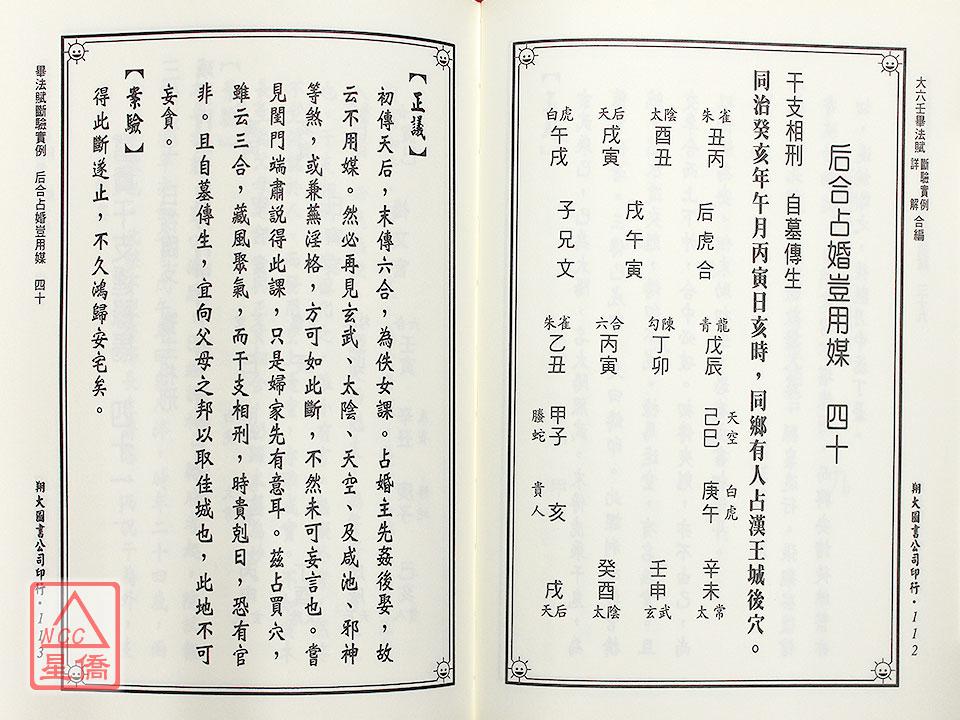 大六壬畢法賦 斷驗實例 詳解 合編
后合占婚豈用媒 四十
干支相刑 自墓傳生
同治癸亥年午月丙寅日亥時，同鄉有人占漢王城後穴。
朱雀 太陰 天后 白虎
丑丙 酉丑 戌寅 午戌
后虎合
戌午寅
子兄文
青龍 勾陳 六合 朱雀
戊辰 丁卯 丙寅 乙丑
天空 己巳 甲子 螣蛇
白虎 庚午 亥 貴人
辛未 壬申 癸酉 戌
太常 玄武 太陰 天后
翔大圖書公司印行・112
【正議】
初傳天后，末傳六合，為佚女課。占婚主先姦後娶，故
云不用媒。然必再見玄武、太陰、天空、及咸池、邪神
等煞，或兼蕪淫格，方可如此斷，不然未可妄言也。嘗
見閨門端肅說得此課，只是婦家先有意耳。茲占買穴，
雖云三合，藏風聚氣，而干支相刑，時貴剋日，恐有官
非。且自墓傳生，宜向父母之邦以取佳城也，此地不可
妄貪。
【案驗】
得此斷遂止，不久鴻歸安宅矣。
畢法賦斷驗實例 后合占婚豈用媒 四十
翔大圖書公司印行・113
NCC
星僑